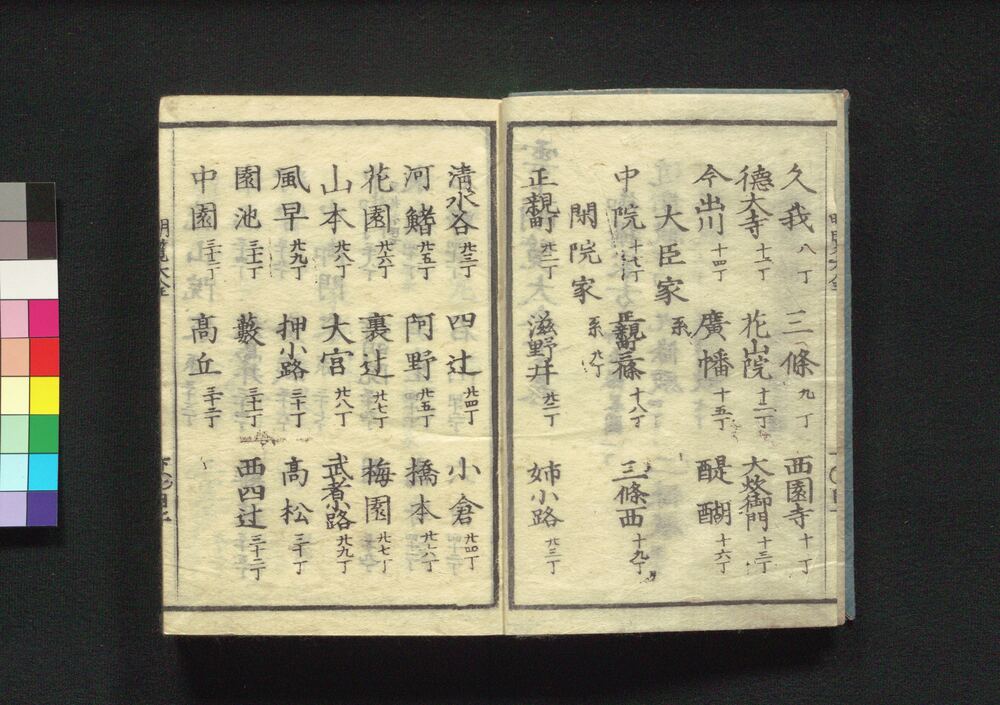 久我 八丁 三條 九丁 西園寺 十丁
德大寺 十一丁 花山院 十二丁 大炊御門 十三丁
今出川 十四丁 廣幡 十五丁 醍醐 十六丁
大臣家 系
中院 十七丁 正親町三條 十八丁 三條西 十九丁
閑院家 系 九丁
正親町 廿一丁 滋野井 廿二丁 姉小路 廿三丁
淸水谷 廿三丁 四辻 廿四丁 小倉 廿四丁
河鰭 廿五丁 阿野 廿五丁 橋本 廿六丁
花園 廿六丁 裏辻 廿七丁 梅園 廿七丁
山本 廿八丁 大宮 廿八丁 武者小路 廿九丁
風早 廿九丁 押小路 三十丁 高松 三十丁
園池 三十一丁 藪 三十一丁 西四辻 三十二丁
中園 三十二丁 髙丘 三十二丁